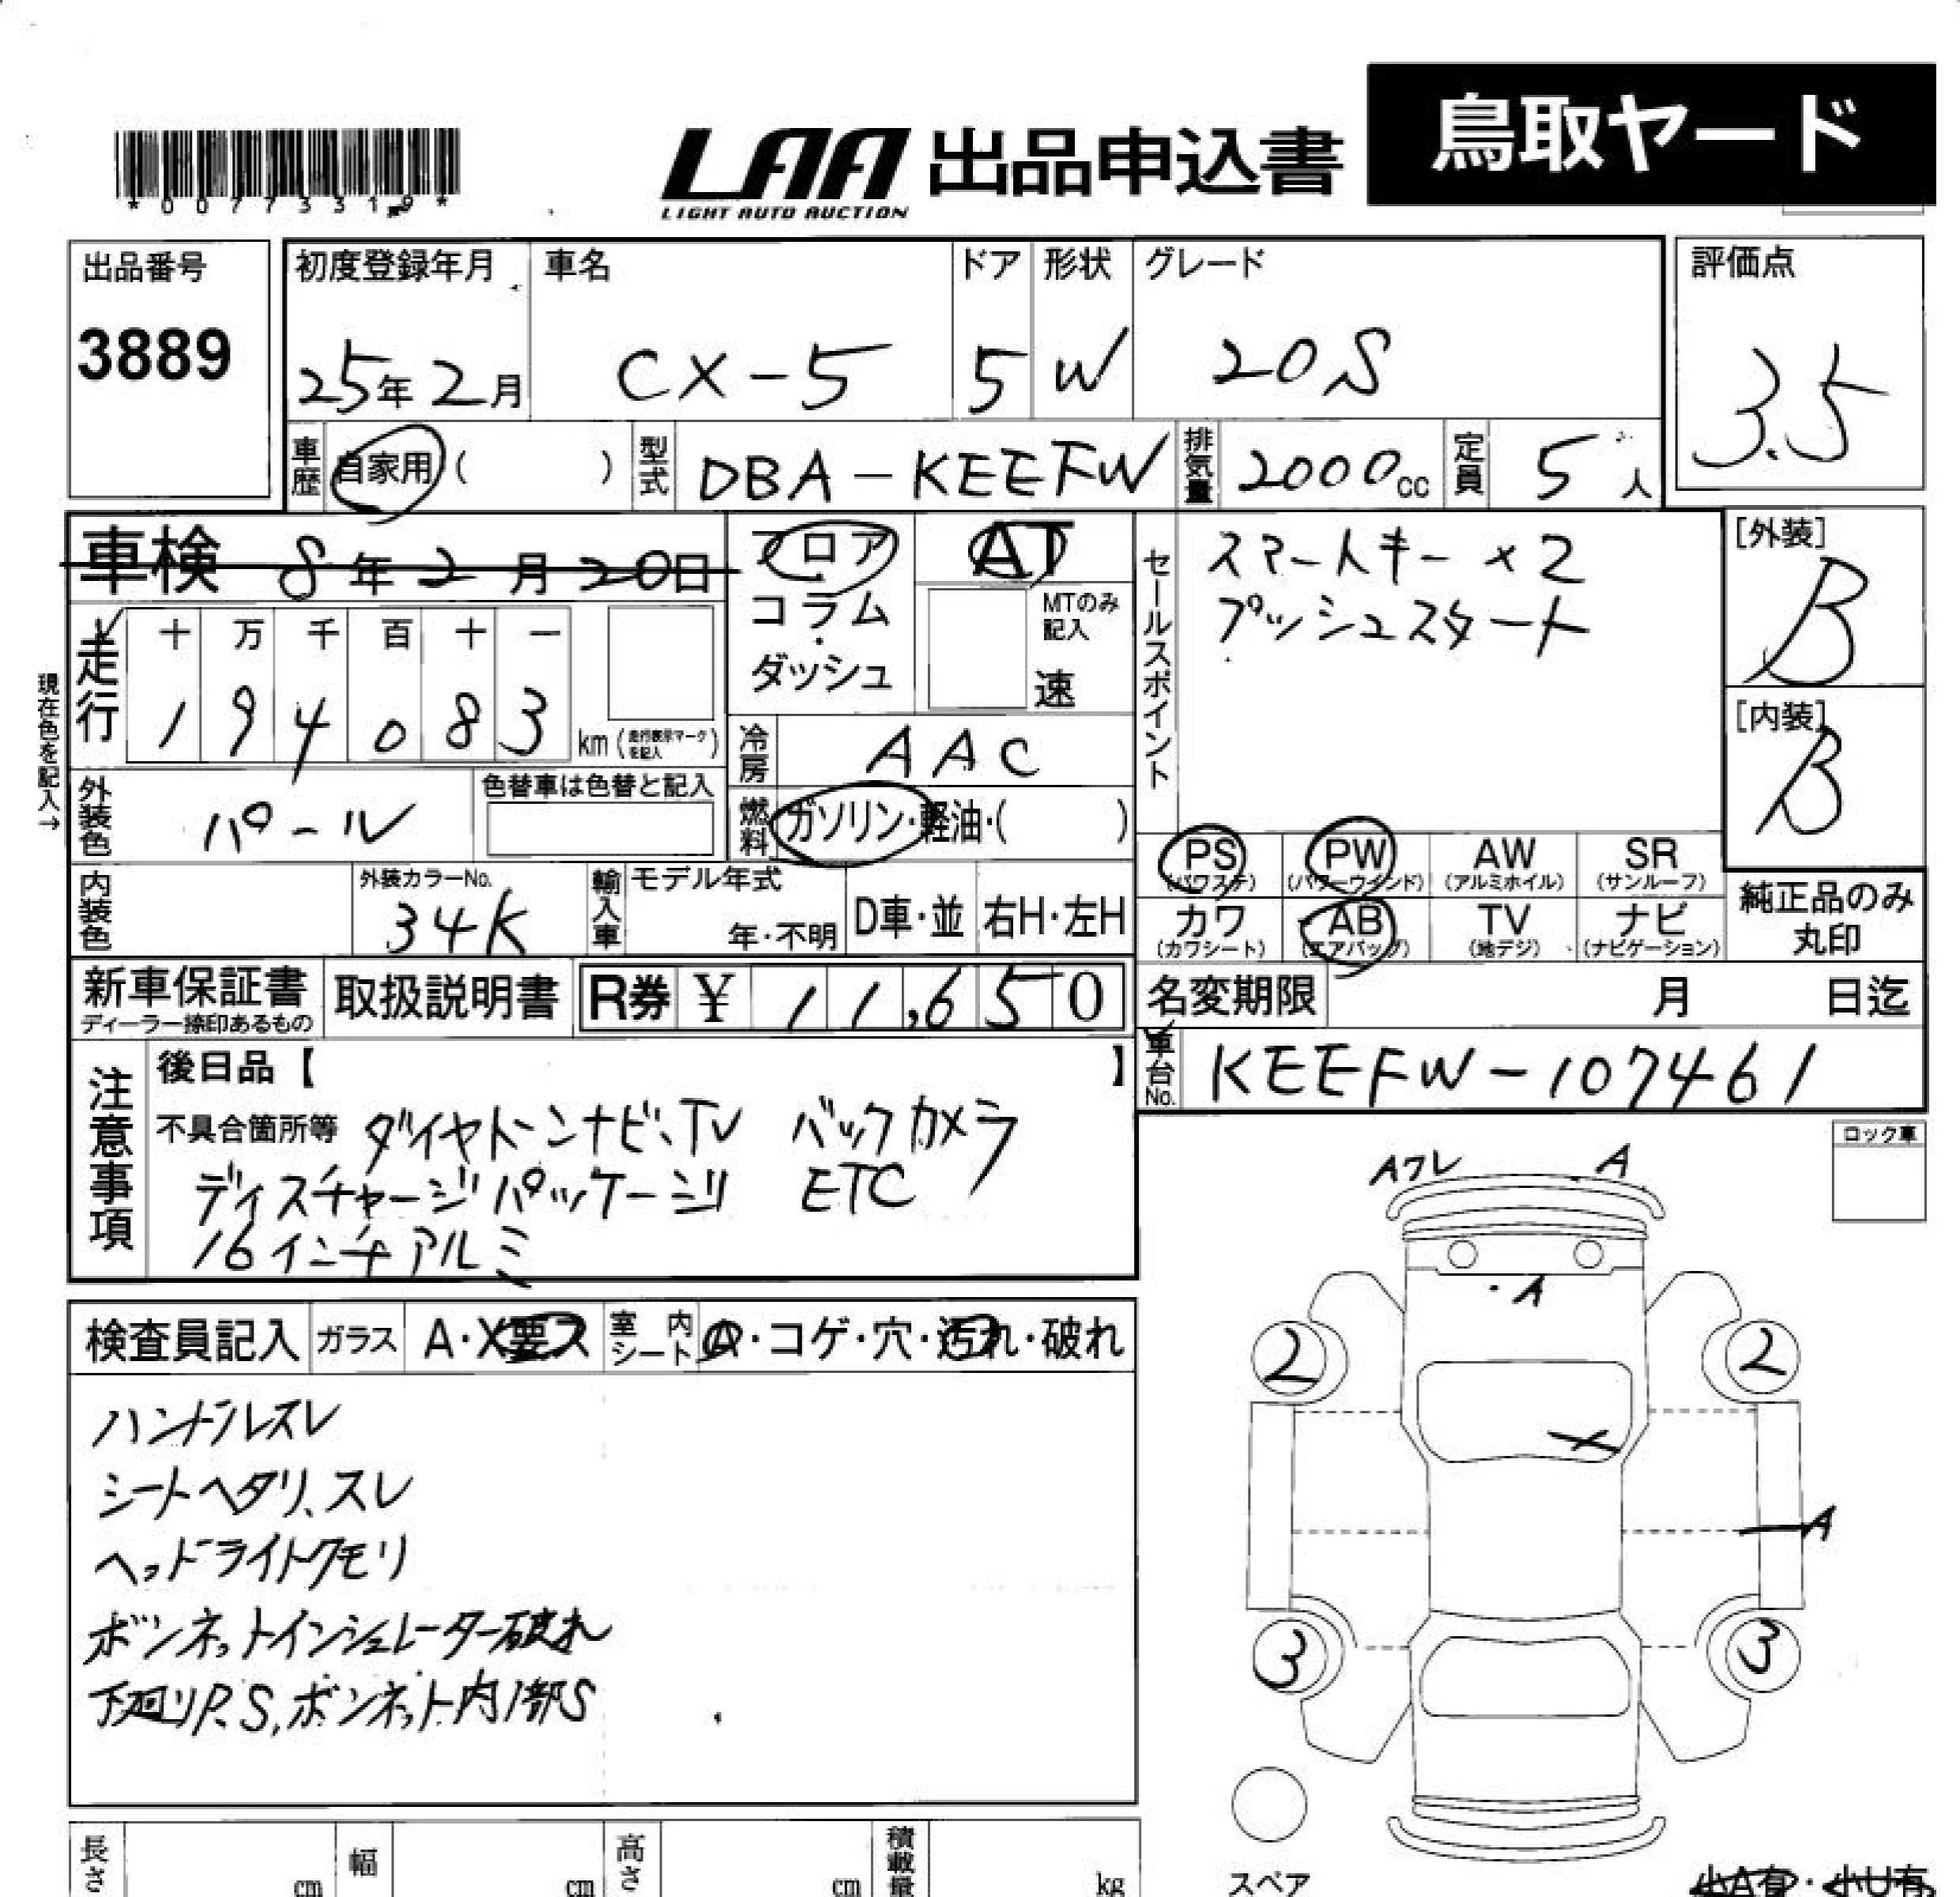 鳥取ヤード
LAA 出品申込書
LIGHT AUTO AUCTION
*0077331
出品番号 初度登録年月 車名 ドア 形状 グレード 評価点
3889 25年2月 CX-5 5 W 20S 3.5
車歴 自家用( ) 型式 DBA-KEEFW 排気量 2000cc 定員 5人
車検 8年2月20日 フロア・コラム・ダッシュ AT
MTのみ記入 速
セールスポイント
スマートキー×2
プッシュスタート
[外装]
B
[内装]
B
現在色を記入→
走行 十 万 千 百 十 一
1 9 4 0 8 3 km(走行表示マークを記入)
冷房 AAC
外装色 パール 色替車は色替と記入
燃料 ガソリン・軽油・( )
PS(パワステ) PW(パワーウインド) AW(アルミホイル) SR(サンルーフ)
カワ(カワシート) AB(エアバッグ) TV(地デジ) ナビ(ナビゲーション)
純正品のみ丸印
内装色 外装カラーNo. 34K 輸入車 モデル年式 年・不明 D車・並 右H・左H
新車保証書 ディーラー捺印あるもの 取扱説明書 R券 ¥ 11,650
名変期限 月 日迄
車台No. KEEFW-107461
注意事項
後日品【 】
不具合箇所等 ダイヤトーンナビ、TV バックカメラ
ディスチャージパッケージ ETC
16インチアルミ
ロック車
Aワレ A
A
2 2
X
A
3 3
検査員記入 ガラス A・X要ス 室内シート A・コゲ・穴・汚れ・破れ
ハンドルスレ
シートヘタリ、スレ
ヘッドライトクモリ
ボンネットインシュレーター破れ
下廻りP.S,ボンネット内部S
長さ cm 幅 cm 高さ cm 積載量 kg
スペア
小A有・小U有